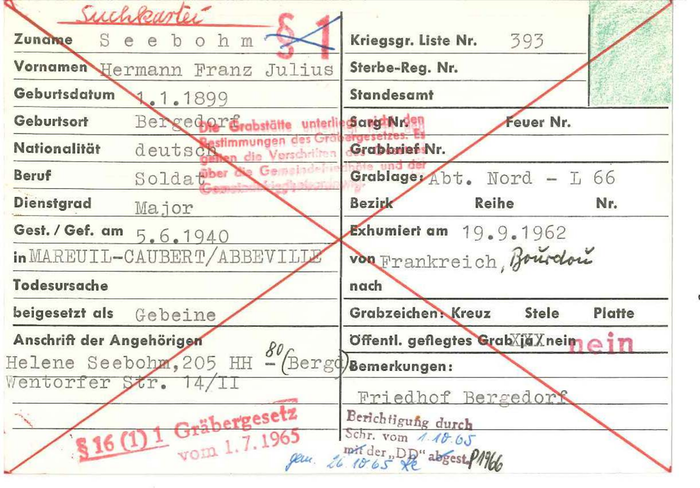 Suchkartei
§ 1
Zuname Seebohm
Vornamen Hermann Franz Julius
Geburtsdatum 1.1.1899
Geburtsort Bergedorf
Nationalität deutsch
Beruf Soldat
Dienstgrad Major
Gest. / Gef. am 5.6.1940
in MAREUIL-CAUBERT/ABBEVILLE
Todesursache
beigesetzt als Gebeine
Anschrift der Angehörigen
Helene Seebohm, 205 HH 80 (Bergd)
Wentorfer Str. 14/II
Die Grabstätte unterliegt nicht den
Bestimmungen des Gräbergesetzes. Es
gelten die Vorschriften des
über die Gemeindefriedhöfe und der
§ 16 (1) 1 Gräbergesetz
vom 1.7.1965
Kriegsgr. Liste Nr. 393
Sterbe-Reg. Nr.
Standesamt
Sarg Nr. Feuer Nr.
Grabbrief Nr.
Grablage: Abt. Nord - L 66
Bezirk Reihe Nr.
Exhumiert am 19.9.1962
von Frankreich, Bourdou
nach
Grabzeichen: Kreuz Stele Platte
Öffentl. gepflegtes Grab ja XXX nein nein
Bemerkungen:
Friedhof Bergedorf
Berichtigung durch
Schr. vom 1.10.65
mit der „DD" abgest. P1966
gem. 26.10.65